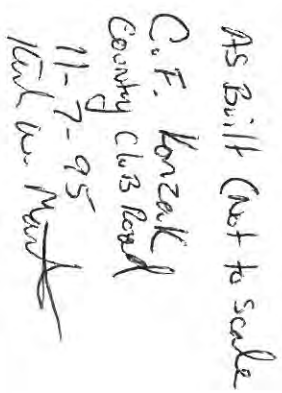 As Built (Not to scale
C.F. Konzak
County CluB Road
11-7-95